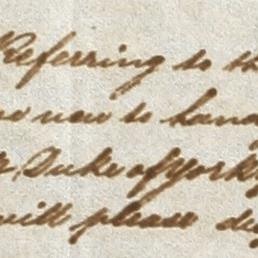 Referring to th
now to han
Duke of York
will please de